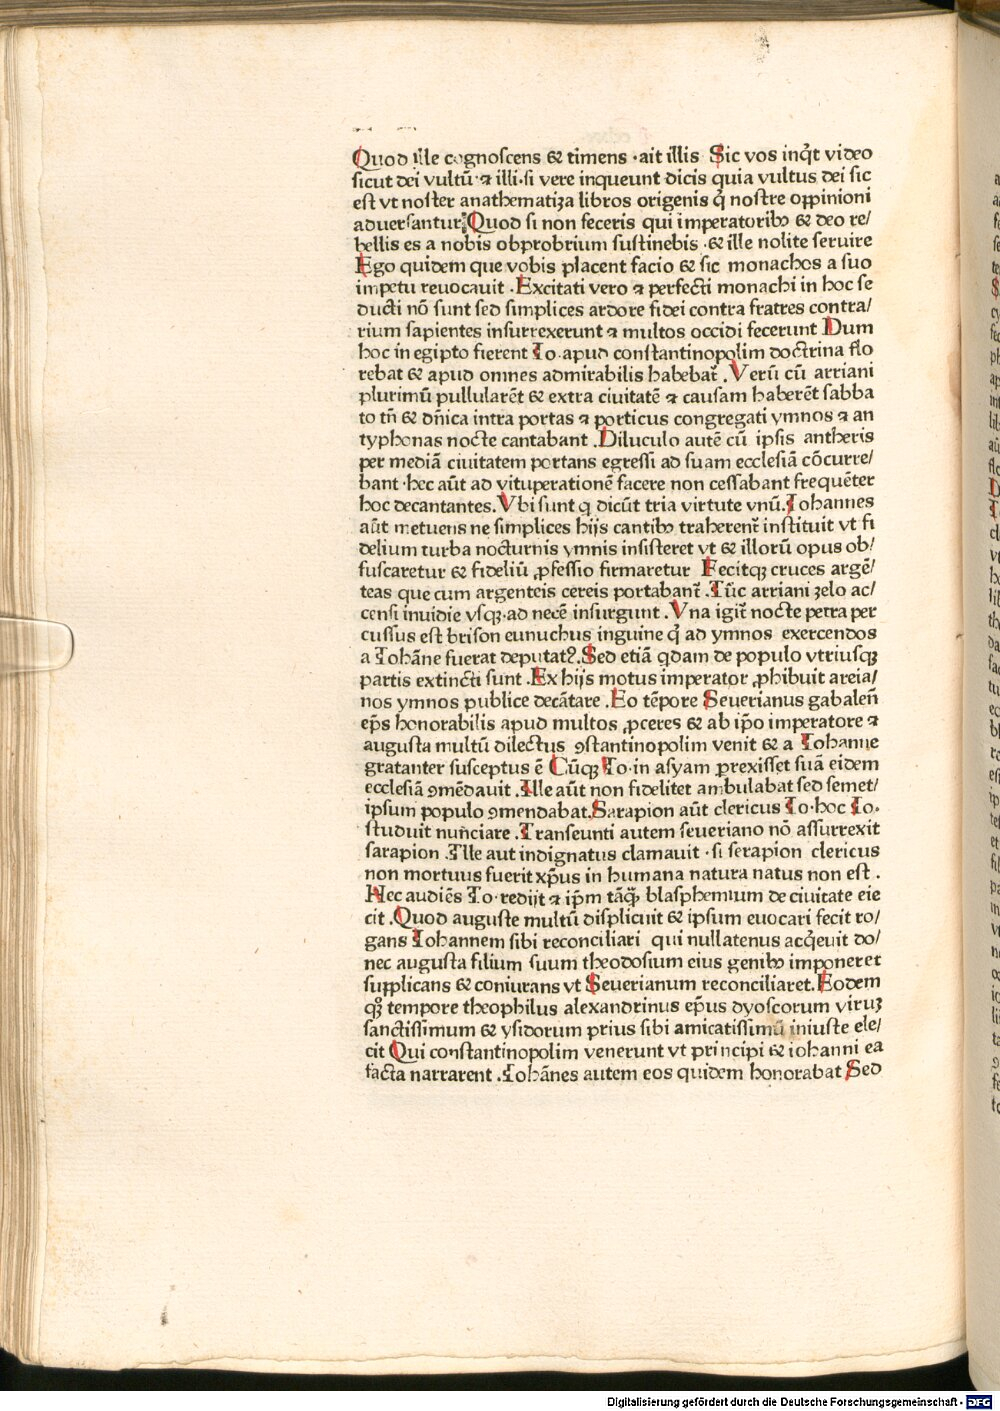 Quod ille cognoscens ⁊ timens ·ait illis Sic vos inq̄t video
sicut dei vultū·⁊ illi·si vere inqueunt dicis quia vultus dei sic
est vt noster anathematiza libros origenis q̄ nostre oppinioni
aduersantur Quod si non feceris qui imperatoribꝰ ⁊ deo re/
bellis es a nobis obprobrium sustinebis ·⁊ ille nolite seruire
Ego quidem que vobis placent facio ⁊ sic monachos a suo
impetu reuocauit ·Excitati vero ⁊ perfecti monachi in hoc se
ducti nō sunt sed simplices ardore fidei contra fratres contra/
rium sapientes insurrexerunt ⁊ multos occidi fecerunt Dum
hoc in egipto fierent Io·apud constantinopolim doctrina flo
rebat ⁊ apud omnes admirabilis habebat̄ .Verū cū arriani
plurimū pullularēt ⁊ extra ciuitatē ⁊ causam haberēt sabba
to tn̄ ⁊ dn̄ica intra portas ⁊ porticus congregati ymnos ⁊ an
typhonas nocte cantabant .Diluculo autē cū ipsis antheris
per mediā ciuitatem portans egressi ad suam ecclesiā cōcurre/
bant ·hec aūt ad vituperationē facere non cessabant frequēter
hoc decantantes.Vbi sunt q dicūt tria virtute vnū.Iohannes
aūt metuens ne simplices hijs cantibꝰ traherent̄ instituit vt fi
delium turba nocturnis ymnis insisteret vt ⁊ illorū opus ob/
fuscaretur ⁊ fideliū ꝓfessio firmaretur Fecitqꝫ cruces argē/
teas que cum argenteis cereis portabant̄ .Tūc arriani zelo ac/
censi inuidie vsqꝫ·ad necē insurgunt .Vna igit̄ nocte petra per
cussus est brison eunuchus inguine q̄ ad ymnos exercendos
a Iohāne fuerat deputatꝰ.Sed etiā qdam de populo vtriusqꝫ
partis extincti sunt .Ex hijs motus imperator ꝓhibuit areia/
nos ymnos publice decātare .Eo tēpore Seuerianus gabaleñ
ep̄s honorabilis apud multos ꝓceres ⁊ ab ip̄o imperatore ⁊
augusta multū dilectus ꝯstantinopolim venit ⁊ a Iohanne
gratanter susceptus ē Cūqꝫ Io·in asyam prexisset suā eidem
ecclesiā ꝯmēdauit .Ille aūt non fidelitet ambulabat sed semet/
ipsum populo ꝯmendabat.Sarapion aūt clericus Io·hoc Io·
studuit nun̄ciare .Transeunti autem seueriano nō assurrexit
sarapion .Ille aut indignatus clamauit ·si serapion clericus
non mortuus fuerit xp̄us in humana natura natus non est .
Hec audiēs Io·redijt ⁊ ip̄m tāqꝫ̄ blasphemium de ciuitate eie
cit .Quod auguste multū displicuit ⁊ ipsum euocari fecit ro/
gans Iohannem sibi reconciliari qui nullatenus acq̄euit do/
nec augusta filium suum theodosium eius genibꝰ imponeret
supplicans ⁊ coniurans vt Seuerianum reconciliaret.Eodem
qꝫ tempore theophilus alexandrinus ep̄us dyoscorum viruꝫ
sanctissimum ⁊ ysidorum prius sibi amicatissimū iniuste eie/
cit Qui constantinopolim venerunt vt principi ⁊ iohanni ea
facta narrarent .Iohānes autem eos quidem honorabat Sed
Digitalisierung gefördert durch die Deutsche Forschungsgemeinschaft - DFG